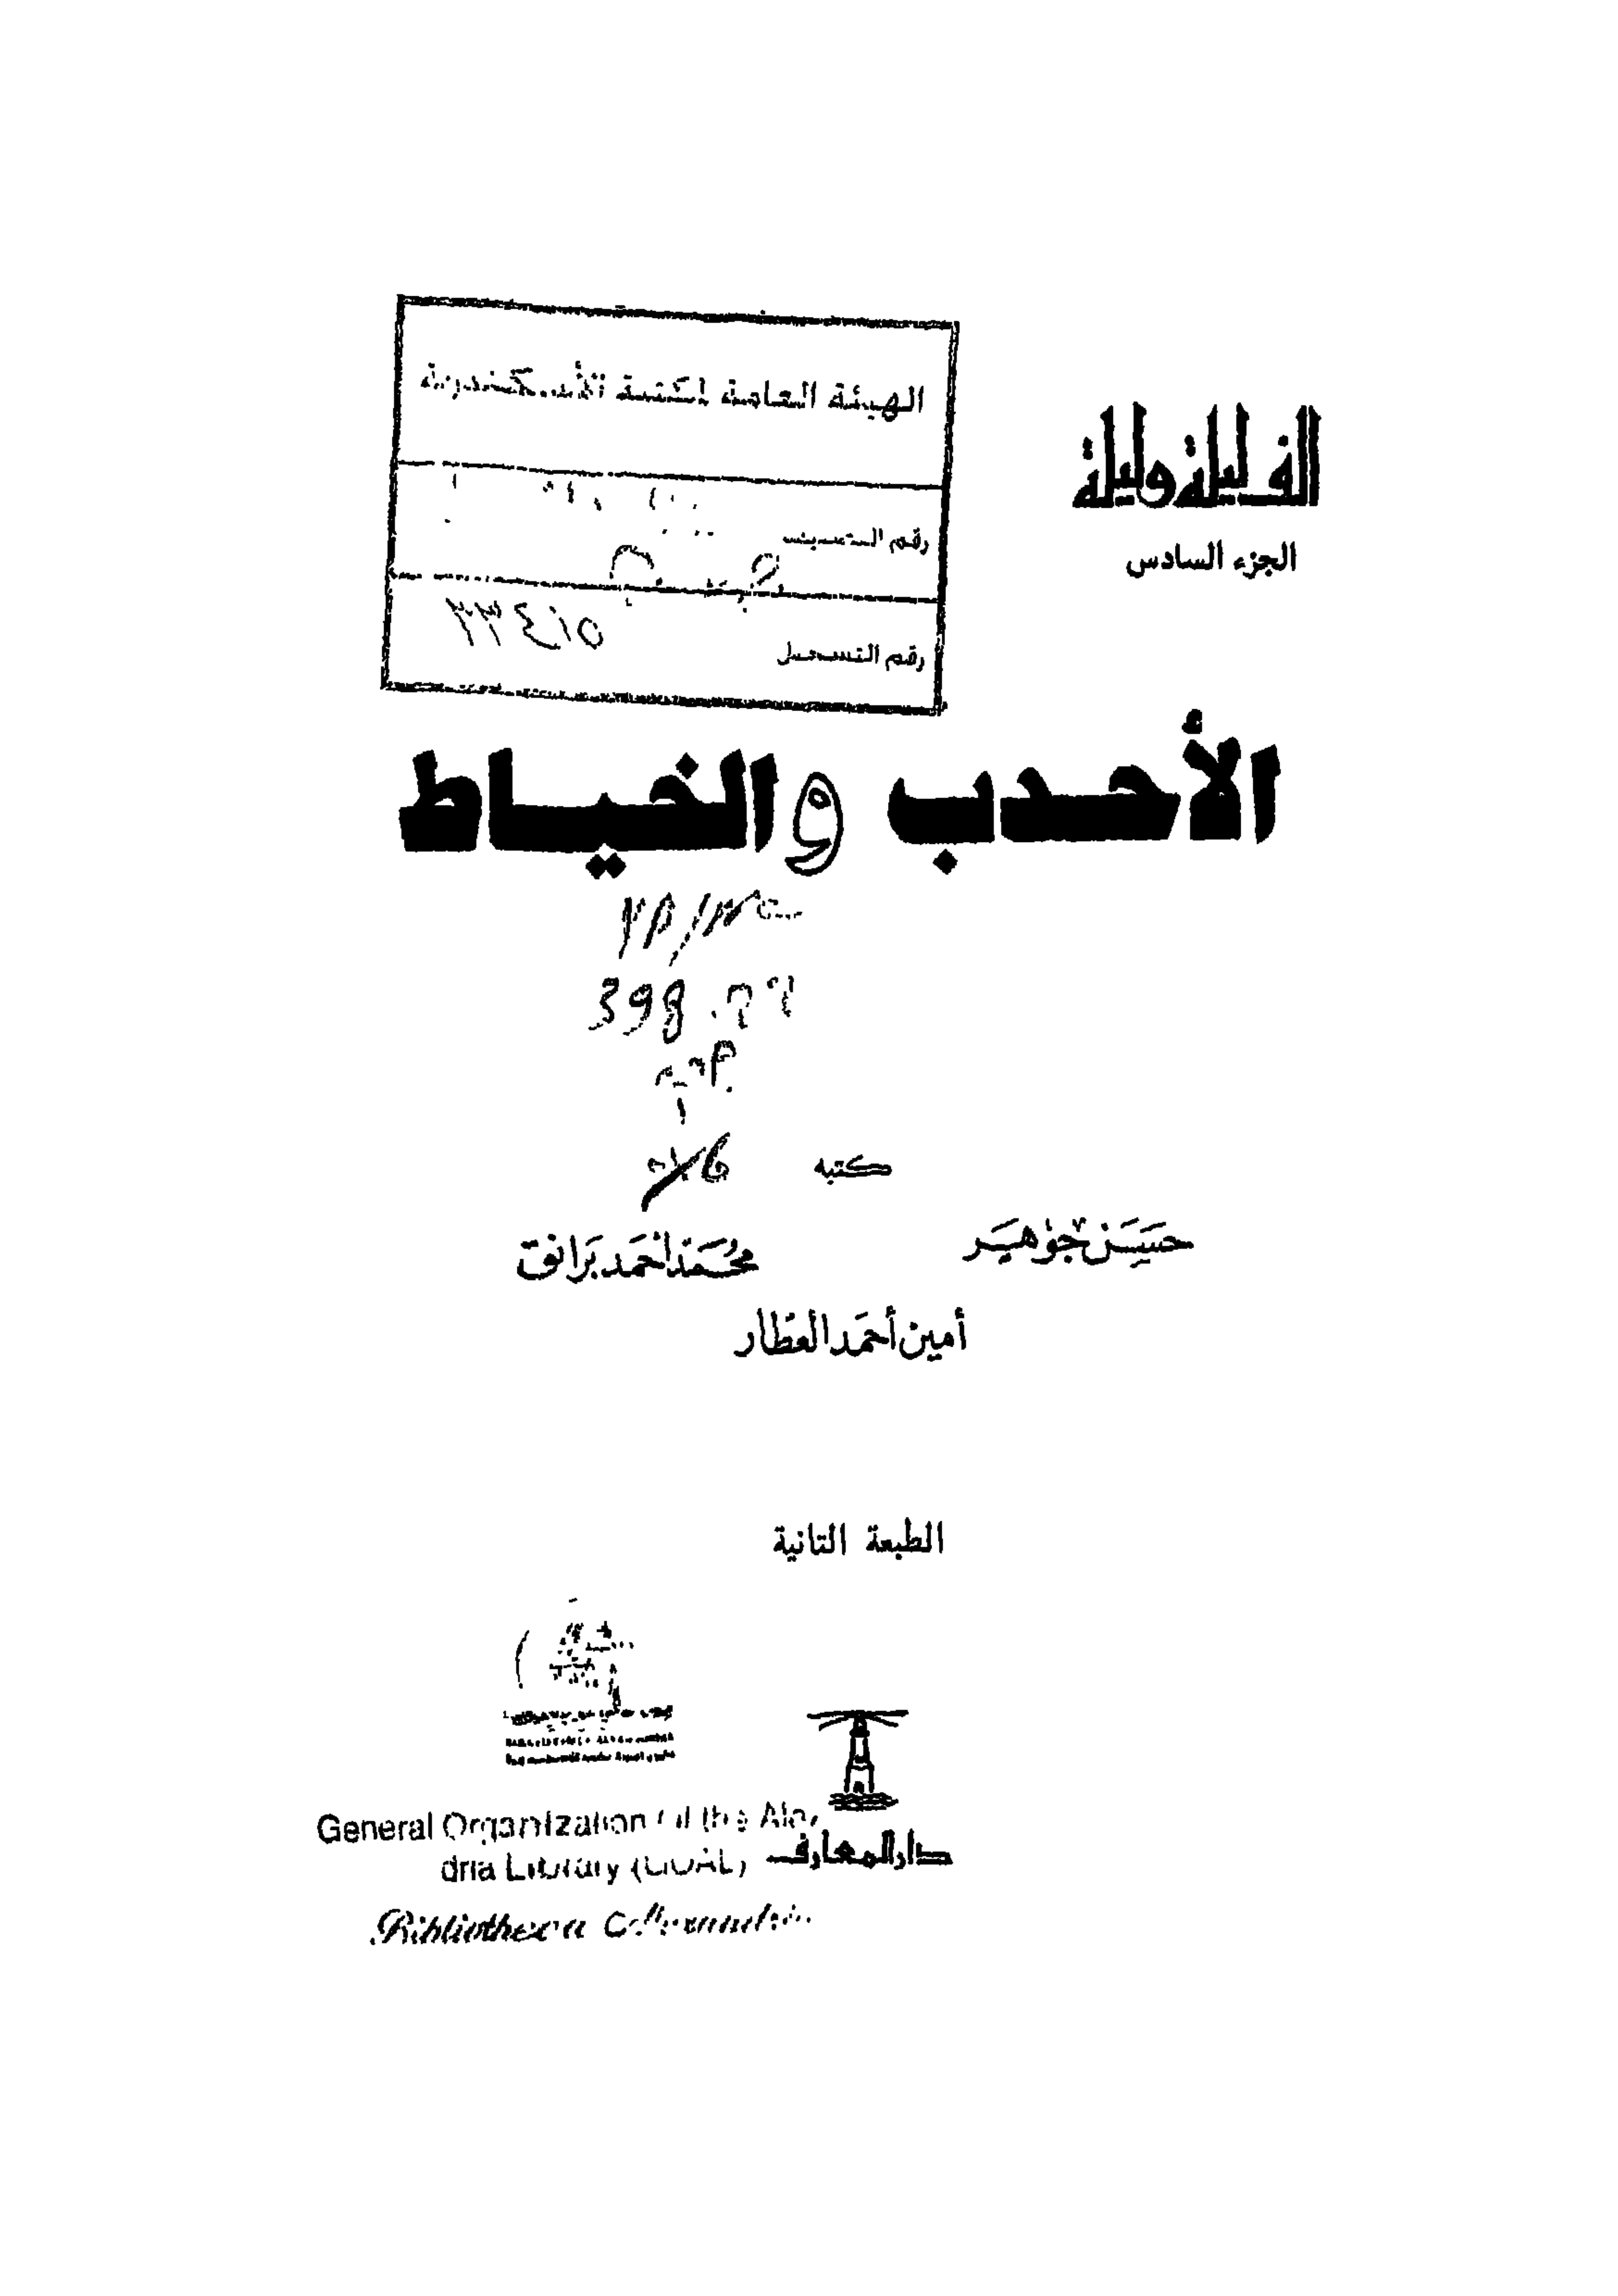 ألف ليلة وليلة
الجزء السادس
الهيئة العامة لمكتبة الأسكندرية
رقم التصنيف
رقم التسجيل
الأحدب والخياط
398
كتبه
حسن جوهر
محمد أحمد برانق
أمين أحمد العطار
الطبعة الثانية
دار المعارف
General Organization of the Alex
dria Library (GOAL)
Bibliotheca Alexandrina